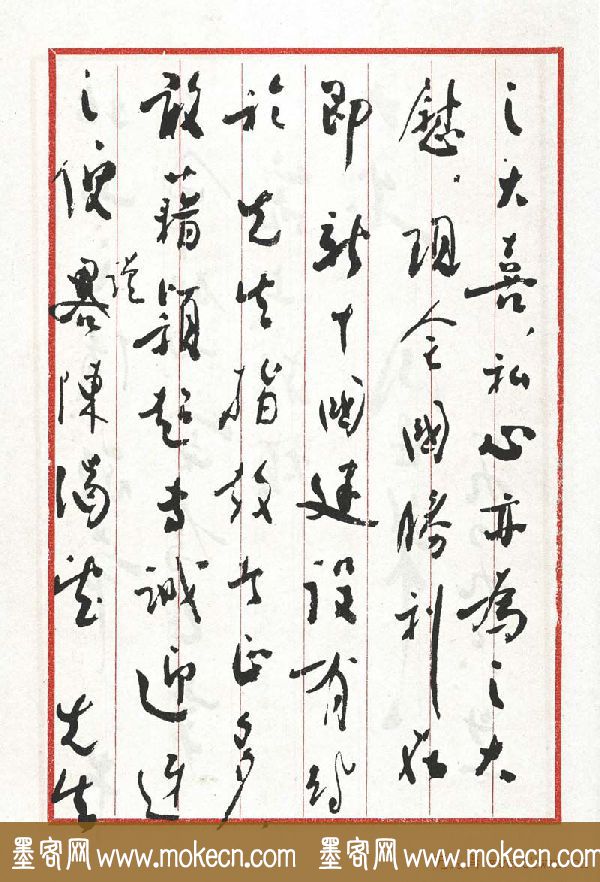 之大喜，私心亦為之大
慰。現全國勝利在
即新中國建設有待
於先生指教者正多
敢藉穎超專誠迎迓
之便謹畧陳渴望 先生
墨客网 www.mokecn.com 墨客网 www.mokecn.com